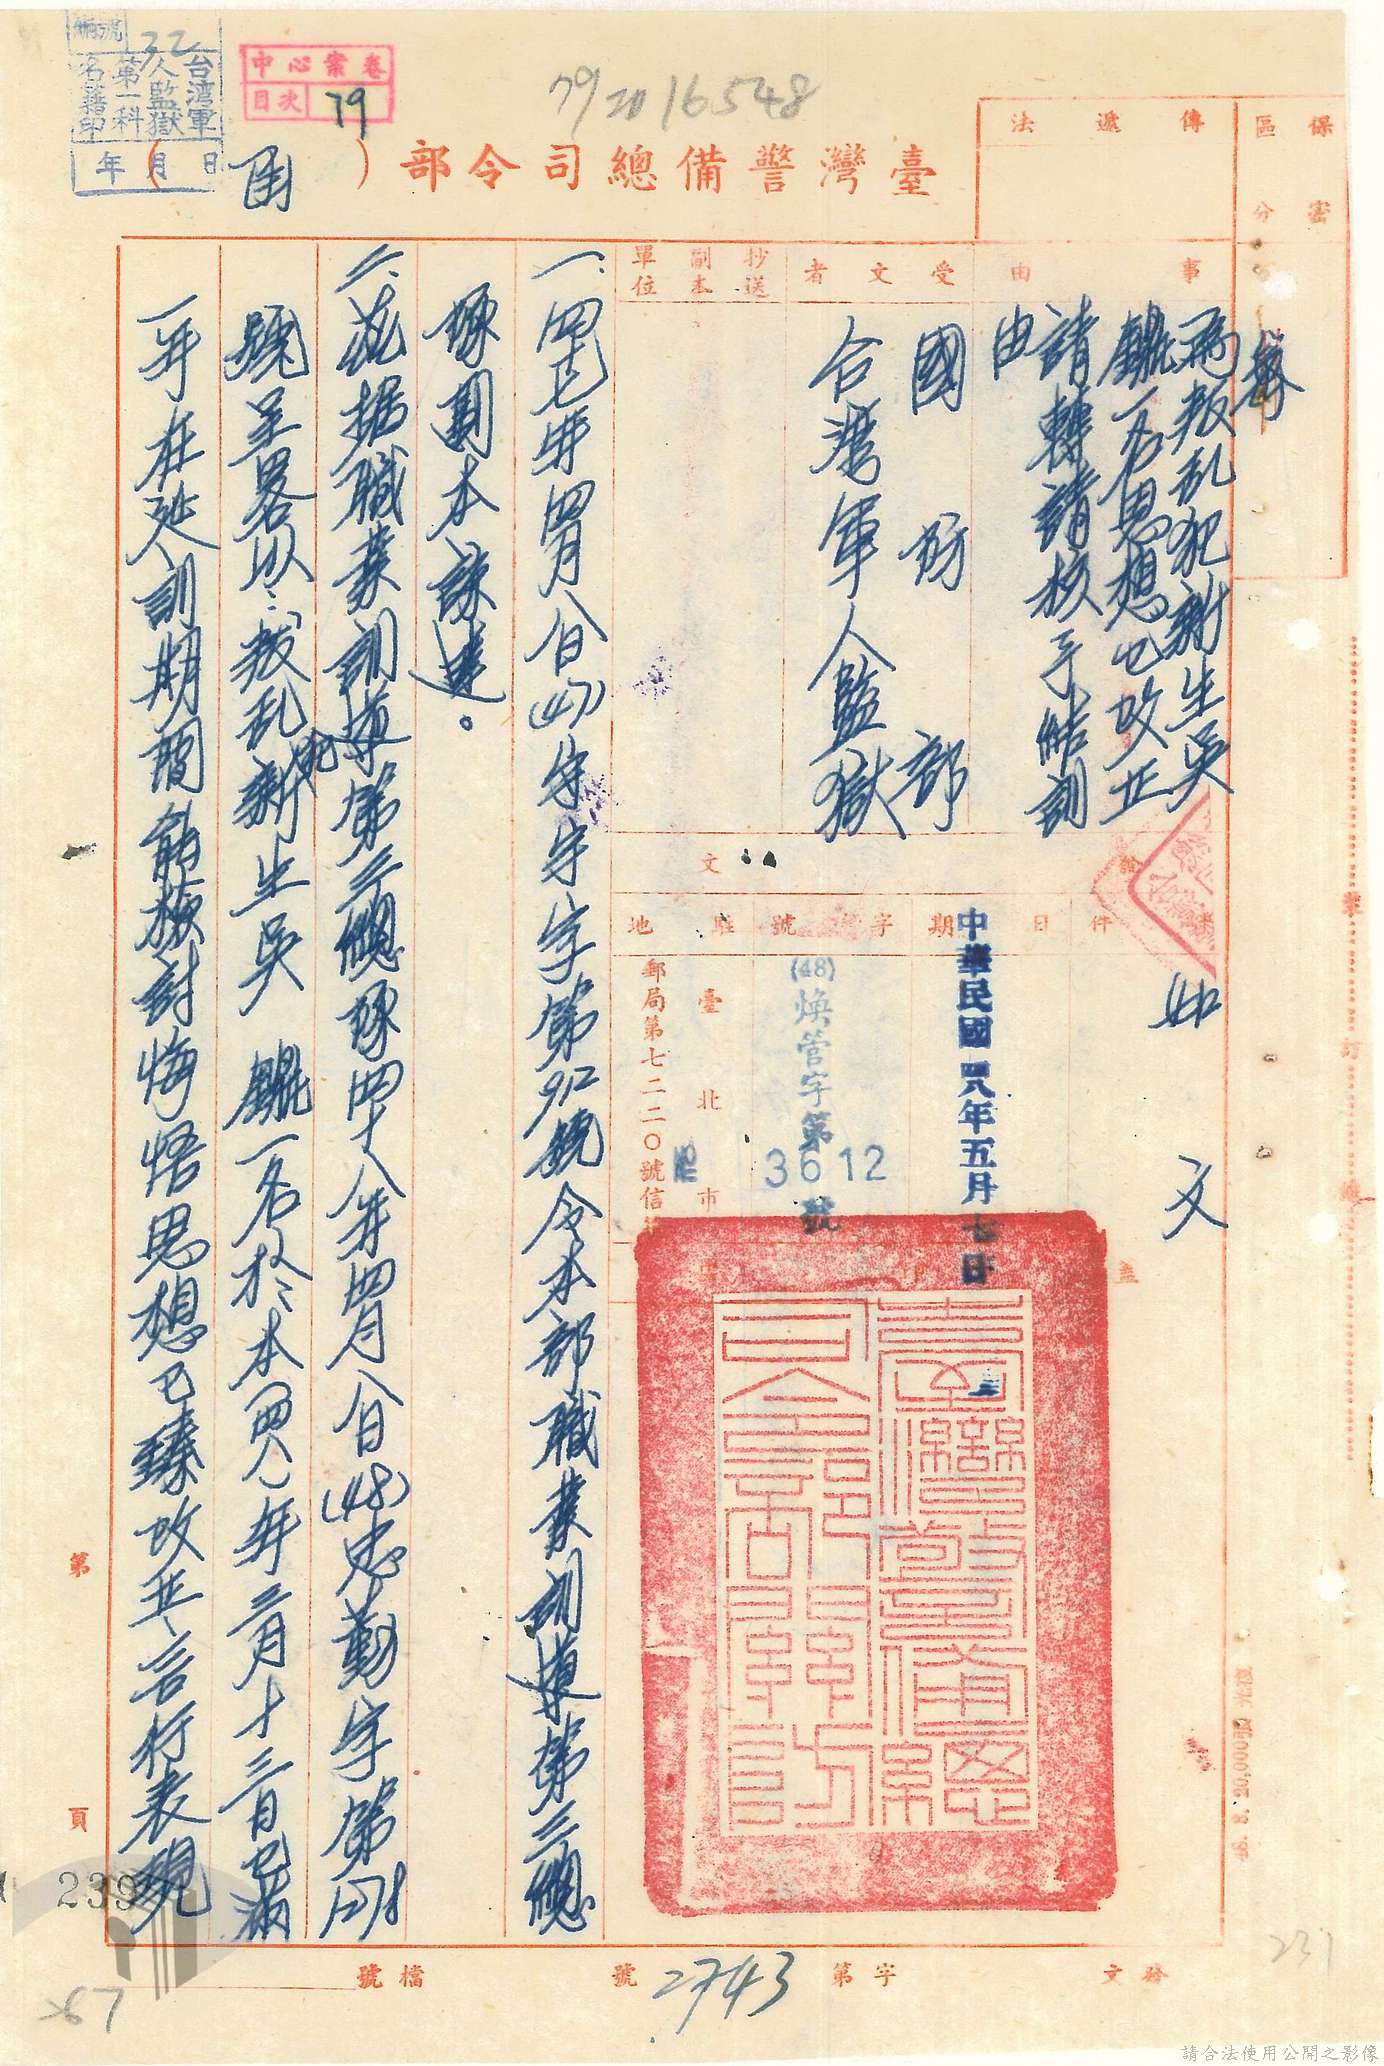 保密
區分
傳遞法
臺灣警備總司令部（函）
台湾軍
人監獄
第一科
名籍印
編號 32
年月日
中心案卷
目次 79
79 20 16548
事由
為叛乱犯新生吳
鵬一名思想已改正
請轉請核予結訓
由
受文者
國防部
台灣軍人監獄
抄送
副本
單位
附件
如文
日期
中華民國四八年五月七日
字號
(48)煥管字第
3612號
駐地
臺北市
郵局第七二二〇號信箱
臺灣警備總
司令部關防
一、四七年四月八日(47)字第912號令本部職業訓導第三總
隊團本諒達。
二、茲据職業訓導第三總隊四十八年四月八日(48)忠勤字第1278
號呈畧以：叛乱犯新生吳 鵬一名於本四八年三月十三日已滿
一年在延訓期間能檢討悔悟思想已臻改正言行表現
第 頁
239
檔號
發文 字第 2743 號
267
231
48. 8. 20,000
裝 訂 線
請合法使用公開之影像